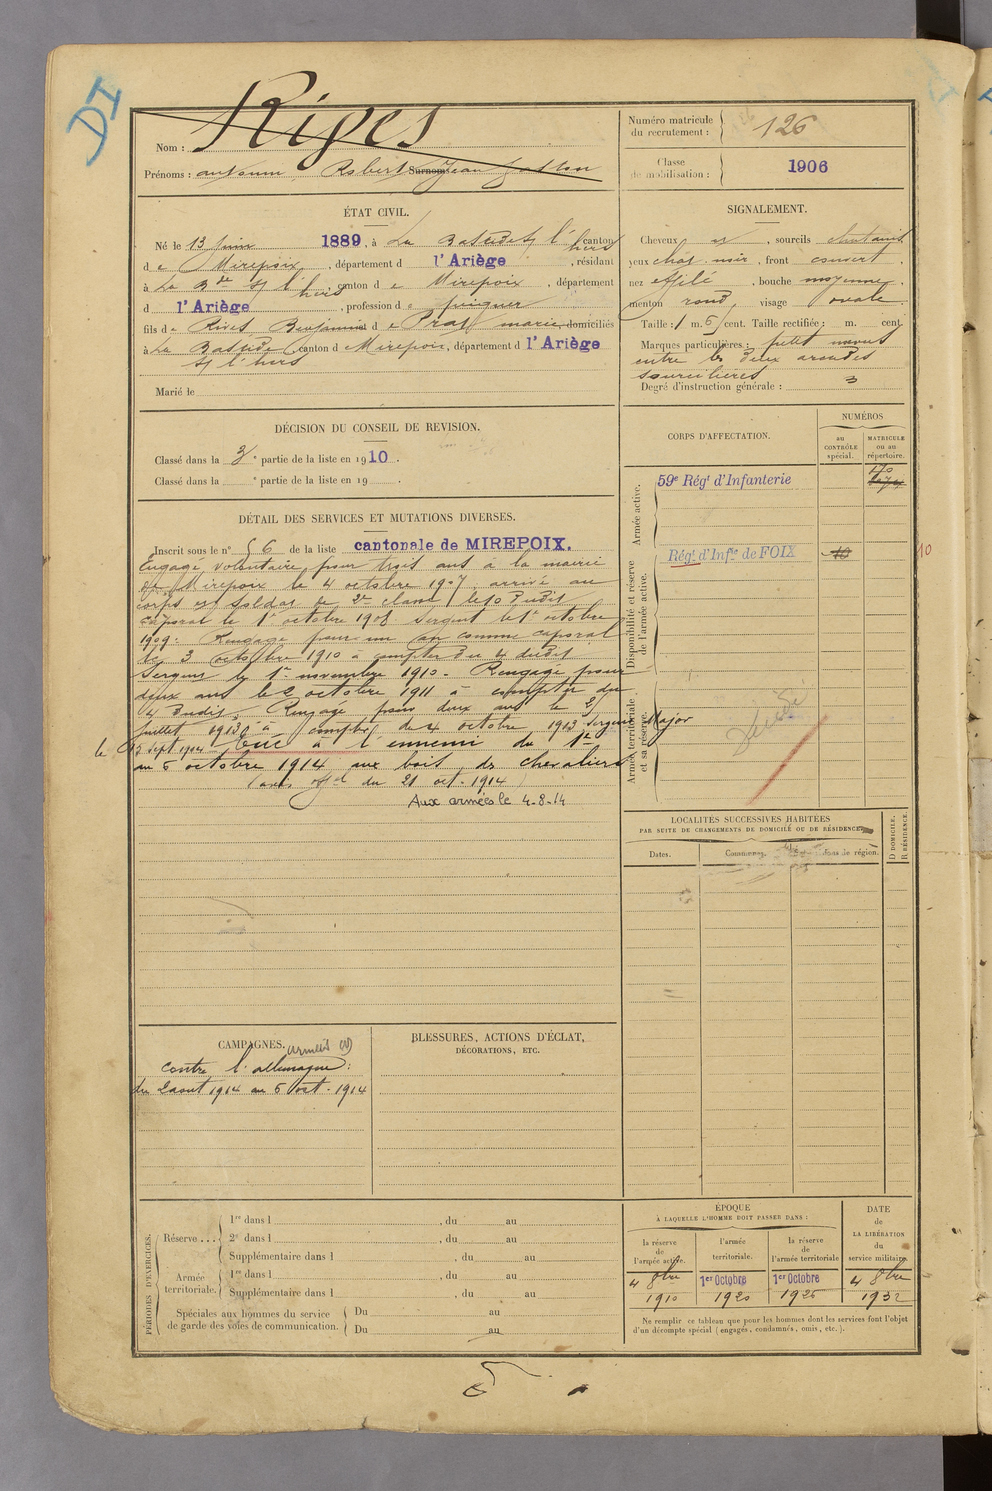 DI
Nom : Rives
Prénoms : antonin Robert Surnoms Jean gaston
Numéro matricule du recrutement : 126
Classe de mobilisation : 1906
ÉTAT CIVIL.
Né le 13 Juin 1889, à La Bastide s/ l'hers canton
de Mirepoix, département d l'Ariège, résidant
à La Bde s/ l'hers, canton de Mirepoix, département
d l'Ariège, profession de
fils de Rives, Benjamin et de Prat marie, domiciliés
à La Bastide s/ l'hers, canton de Mirepoix, département d l'Ariège
Marié le
SIGNALEMENT.
Cheveux et, sourcils chatains
yeux chat. noir, front couvert,
nez effilé, bouche moyenne,
menton rond, visage ovale.
Taille : 1 m. 6 cent. Taille rectifiée : m. cent.
Marques particulières : petit
entre les deux arcades
sourcilières
Degré d'instruction générale : 3
DÉCISION DU CONSEIL DE REVISION.
Classé dans la 3e partie de la liste en 1910.
Classé dans la e partie de la liste en 19 .
CORPS D'AFFECTATION.
NUMÉROS
au CONTRÔLE spécial.
MATRICULE ou au répertoire.
Armée active.
59e Régt d'Infanterie
170
Disponibilité et réserve de l'armée active.
Régt d'Infie de FOIX
10
10
Armée territoriale et sa réserve.
DÉTAIL DES SERVICES ET MUTATIONS DIVERSES.
Inscrit sous le n° 56 de la liste cantonale de MIREPOIX.
Engagé volontaire pour trois ans à la mairie
de Mirepoix le 4 octobre 1907 arrivé au
corps et soldat de 2e classe le 10 dudit
Caporal le 1er octobre 1908. Sergent le 1er octobre
1909. Rengagé pour un an comme caporal
le 3 octobre 1910 à compter du 4 dudit
Sergent le 1er novembre 1910. Rengagé pour
deux ans le 2 octobre 1911 à compter du
4 dudit. Rengagé pour deux ans le
juillet 1913 à compter du 4 octobre 1913 Sergent Major
le 15 sept. 1914 Tué à l'ennemi du 1er
au 6 octobre 1914 aux bois des chevaliers
(avis offel du 21 oct. 1914)
Aux armées le 4-8-14
LOCALITÉS SUCCESSIVES HABITÉES
PAR SUITE DE CHANGEMENTS DE DOMICILE OU DE RÉSIDENCE.
Dates.
Communes.
Subdivisions de région.
D DOMICILE.
R RÉSIDENCE.
CAMPAGNES.
armées
contre l'allemagne :
du 2 aout 1914 au 6 oct. 1914
BLESSURES, ACTIONS D'ÉCLAT,
DÉCORATIONS, ETC.
PÉRIODES D'EXERCICES.
Réserve ...
1re dans l , du au
2e dans l , du au
Supplémentaire dans l , du au
Armée territoriale.
1re dans l , du au
Supplémentaire dans l , du au
Spéciales aux hommes du service
de garde des voies de communication.
Du au
Du au
ÉPOQUE
À LAQUELLE L'HOMME DOIT PASSER DANS :
la réserve de l'armée active.
l'armée territoriale.
la réserve de l'armée territoriale
DATE
de
LA LIBÉRATION
du
service militaire.
4 8bre 1910
1er Octobre 1920
1er Octobre 1926
4 8bre 1932
Ne remplir ce tableau que pour les hommes dont les services font l'objet
d'un décompte spécial (engagés, condamnés, omis, etc.).